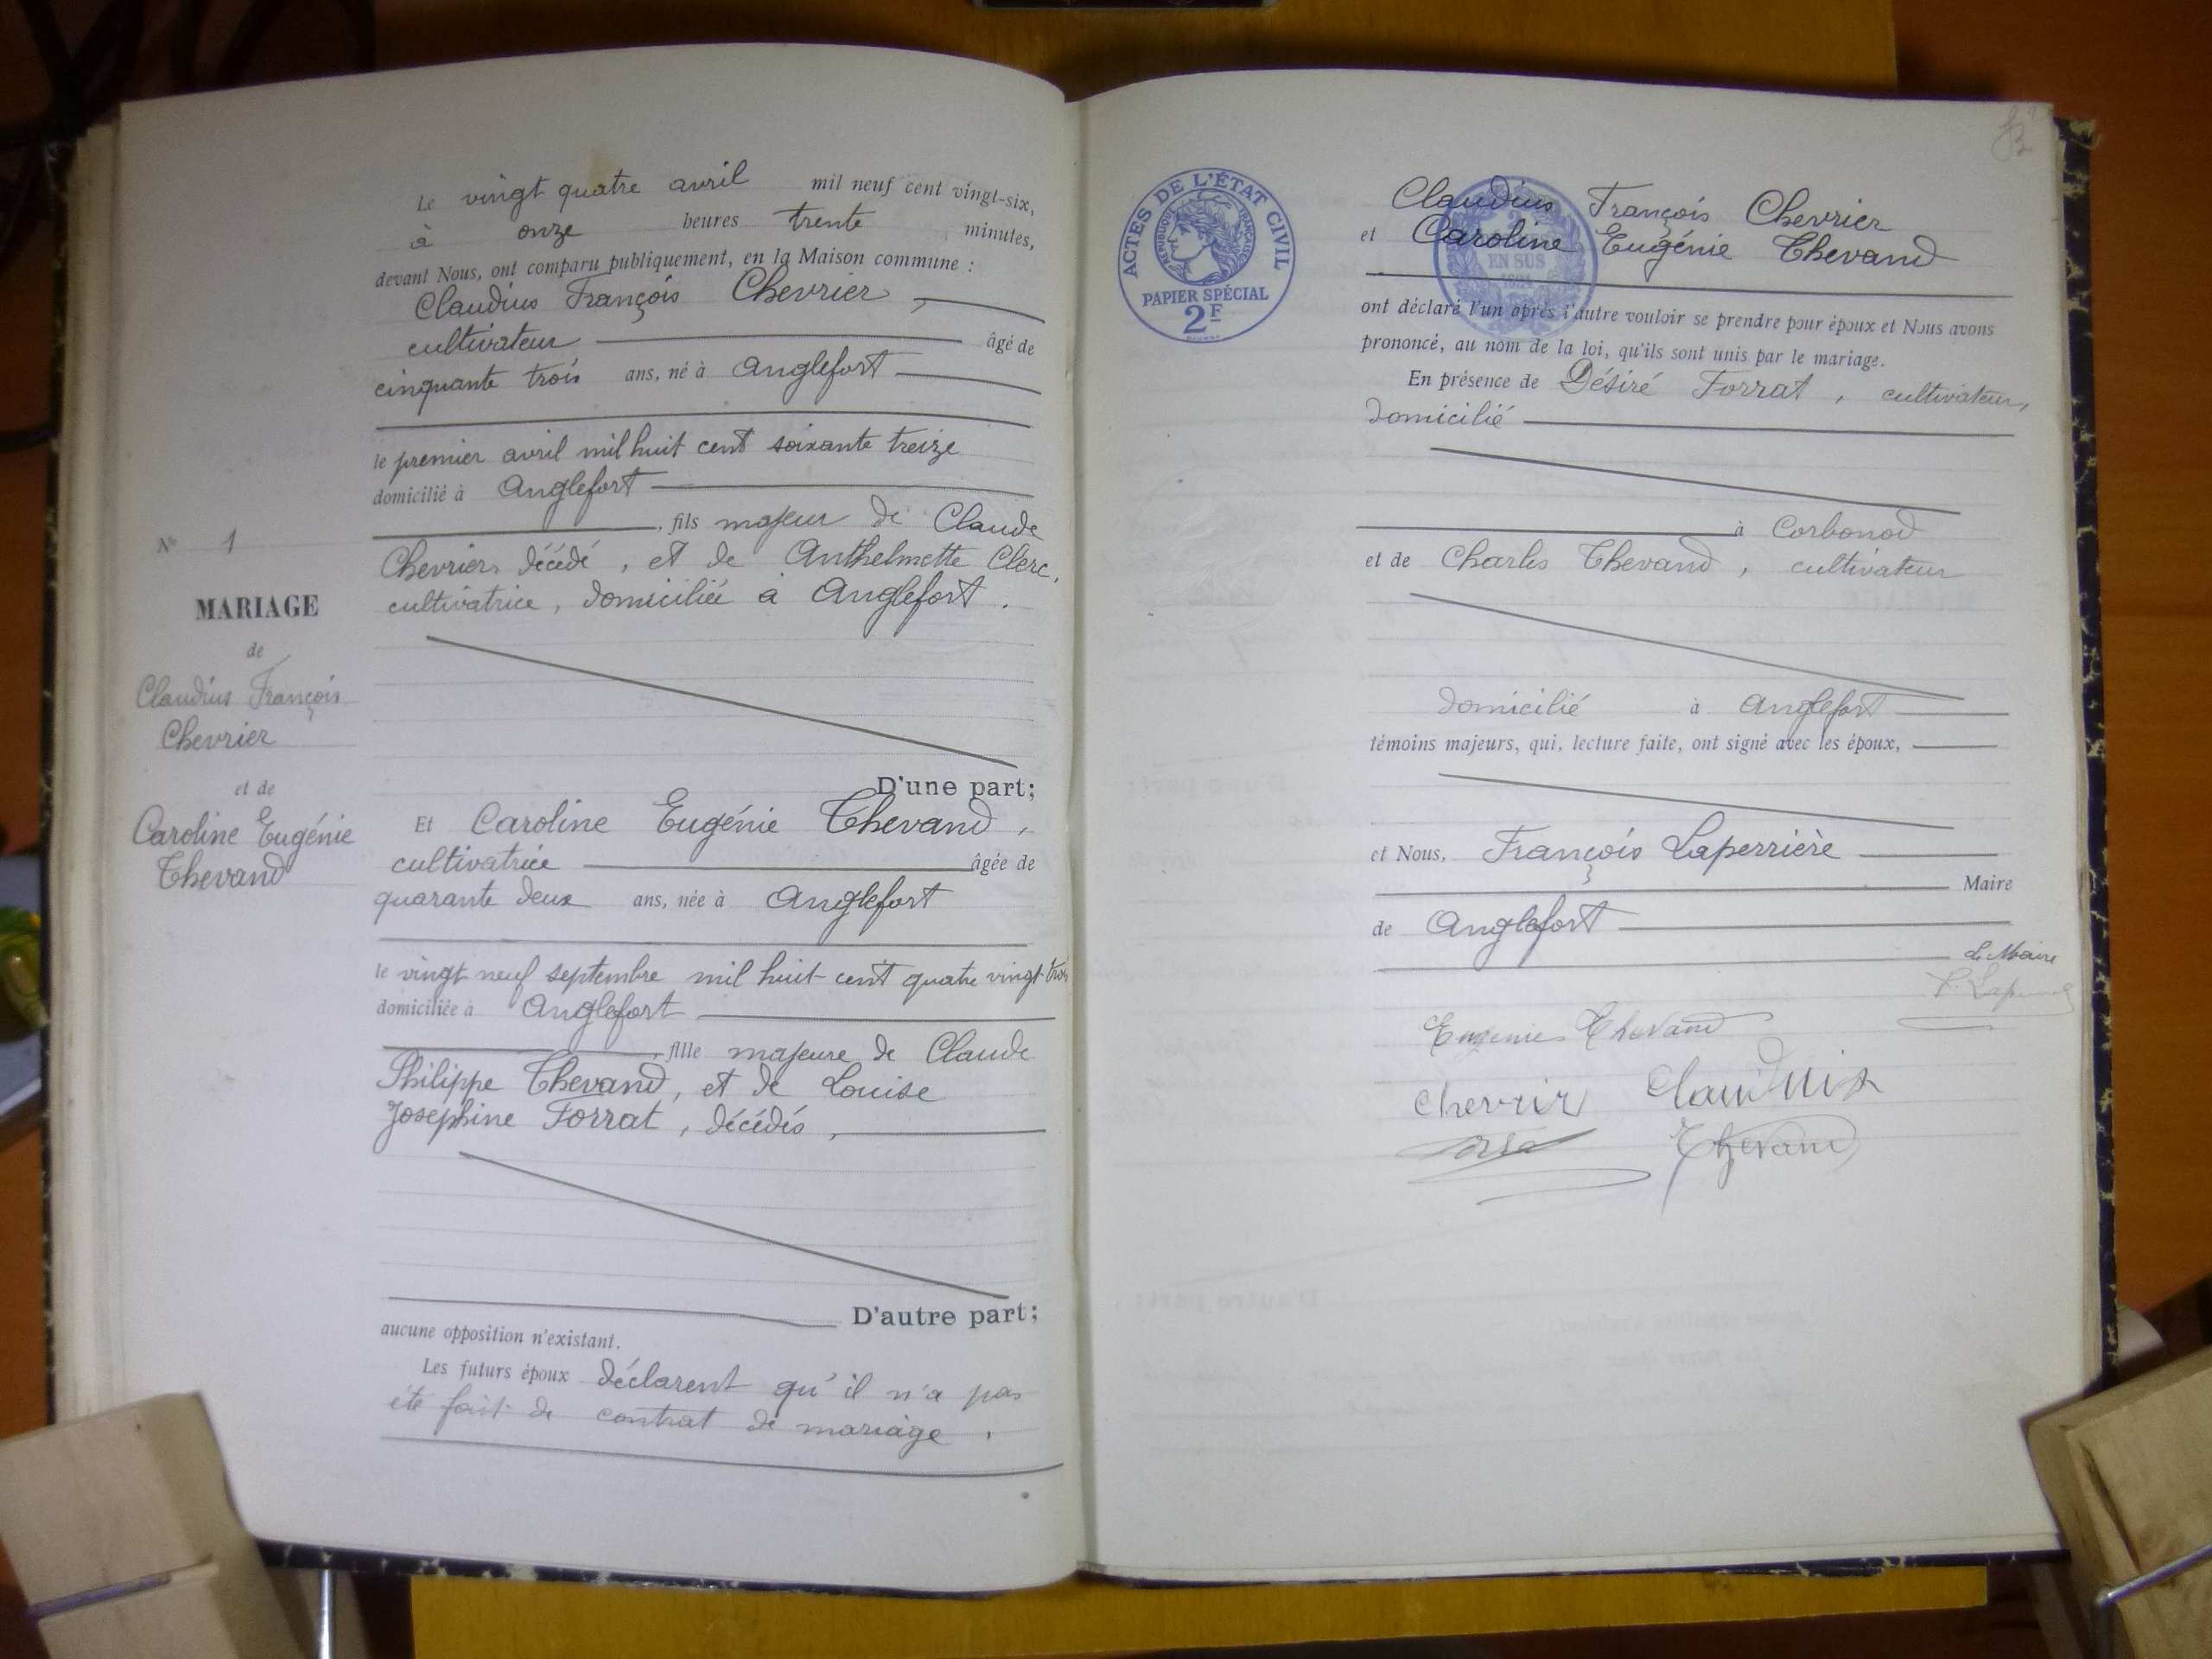 Le vingt quatre avril mil neuf cent vingt-six,
à onze heures trente minutes,
devant Nous, ont comparu publiquement, en la Maison commune :
Claudius François Chevrier,
cultivateur âgé de
cinquante trois ans, né à Anglefort
le premier avril mil huit cent soixante treize
domicilié à Anglefort
, fils majeur de Claude
Chevrier, décédé, et de Anthelmette Clerc,
cultivatrice, domiciliée à Anglefort.
N° 1
MARIAGE
de
Claudius François
Chevrier
et de
Caroline Eugénie
Thevand
D'une part;
Et Caroline Eugénie Thevand,
cultivatrice âgée de
quarante deux ans, née à Anglefort
le vingt neuf septembre mil huit cent quatre vingt trois
domiciliée à Anglefort
, fille majeure de Claude
Philippe Thevand, et de Louise
Josephine Forrat, décédés,
D'autre part;
aucune opposition n'existant.
Les futurs époux déclarent qu'il n'a pas
été fait de contrat de mariage.
ACTES DE L'ÉTAT CIVIL
RÉPUBLIQUE FRANÇAISE
PAPIER SPÉCIAL
2F
EN SUS
Claudius François Chevrier
et Caroline Eugénie Thevand
ont déclaré l'un après l'autre vouloir se prendre pour époux et Nous avons
prononcé, au nom de la loi, qu'ils sont unis par le mariage.
En présence de Désiré Forrat, cultivateur,
domicilié
à Corbonod
et de Charles Thevand, cultivateur
domicilié à Anglefort
témoins majeurs, qui, lecture faite, ont signé avec les époux,
et Nous, François Laperrière
Maire
de Anglefort
Le Maire
Eugenie Thevand
Chevrir Claudius
Thevand